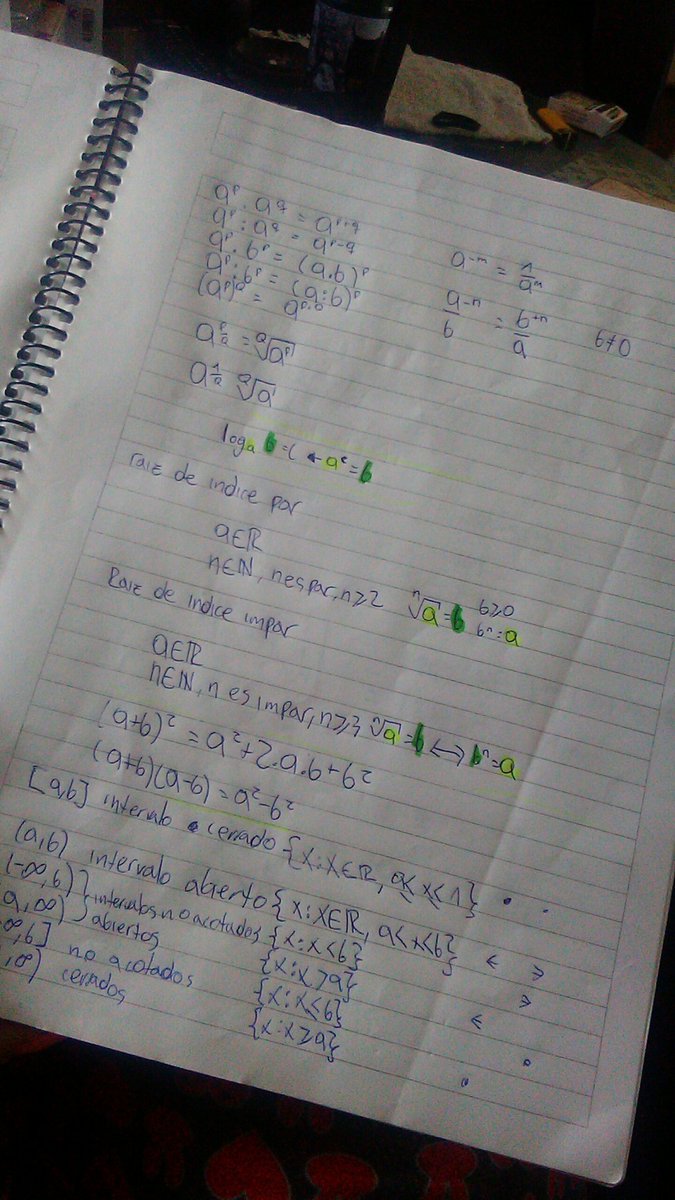 a^p . a^q = a^p+q
a^p : a^q = a^p-q
a^p . b^p = (a.b)^p
a^p : b^p = (a:b)^p
(a^p)^q = a^p.q
a^-n = 1/a^n
a^-n/b = b^+n/a b≠0
a^p/q = q√a^p
a^1/q q√a
log a b = c ← a^c = b
raiz de indice par
a∈ℝ
n∈ℕ, n es par, n≥2 n√a = b b≥0
b^n = a
Raiz de indice impar
a∈ℝ
n∈ℕ, n es impar, n≥3 n√a = b ↔ b^n = a
(a+b)² = a²+2.a.b+b²
(a+b)(a-b) = a²-b²
[a,b] intervalo cerrado {x:x∈ℝ, a≤x≤1}
(a,b) intervalo abierto {x:x∈ℝ, a<x<b}
(-∞,b) } intervalos no acotados {x:x<b}
a,∞) abiertos {x:x>a}
∞,b] no acotados {x:x≤b}
,∞) cerrados {x:x≥a}